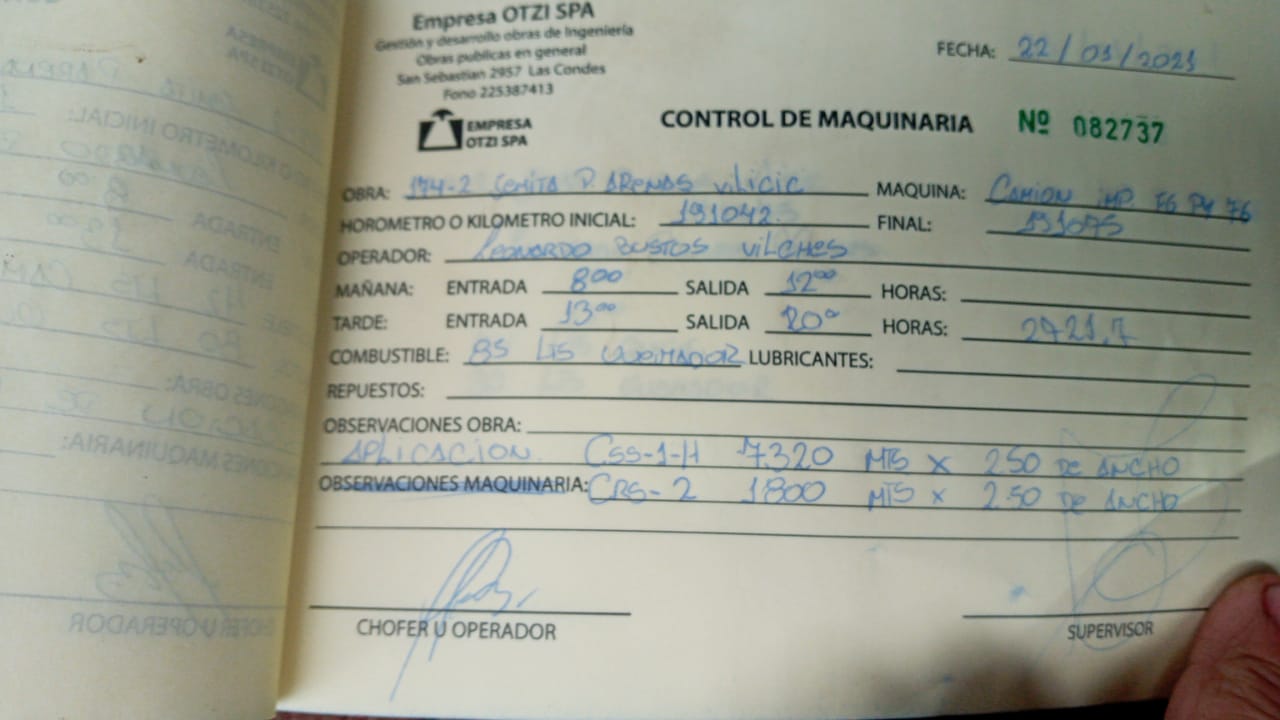 Empresa OTZI SPA
Gestión y desarrollo obras de Ingeniería
Obras publicas en general
San Sebastian 2957 Las Condes
Fono 225387413
EMPRESA OTZI SPA
FECHA: 22/01/2021
CONTROL DE MAQUINARIA Nº 082737
OBRA: 174-2 SEMITA P. ARENAS VILICIC MAQUINA: CAMION IMP
HOROMETRO O KILOMETRO INICIAL: 191042 FINAL: 191075
OPERADOR: LEONARDO BUSTOS VILCHES
MAÑANA: ENTRADA 8:00 SALIDA 12:00 HORAS:
TARDE: ENTRADA 13:00 SALIDA 20:00 HORAS: 2421,7
COMBUSTIBLE: 85 LTS QUEMADOR LUBRICANTES:
REPUESTOS:
OBSERVACIONES OBRA:
APLICACION. CSS-1-H 7320 MTS X 2.50 DE ANCHO
OBSERVACIONES MAQUINARIA: CRS-2 1800 MTS X 2.50 DE ANCHO
CHOFER U OPERADOR SUPERVISOR